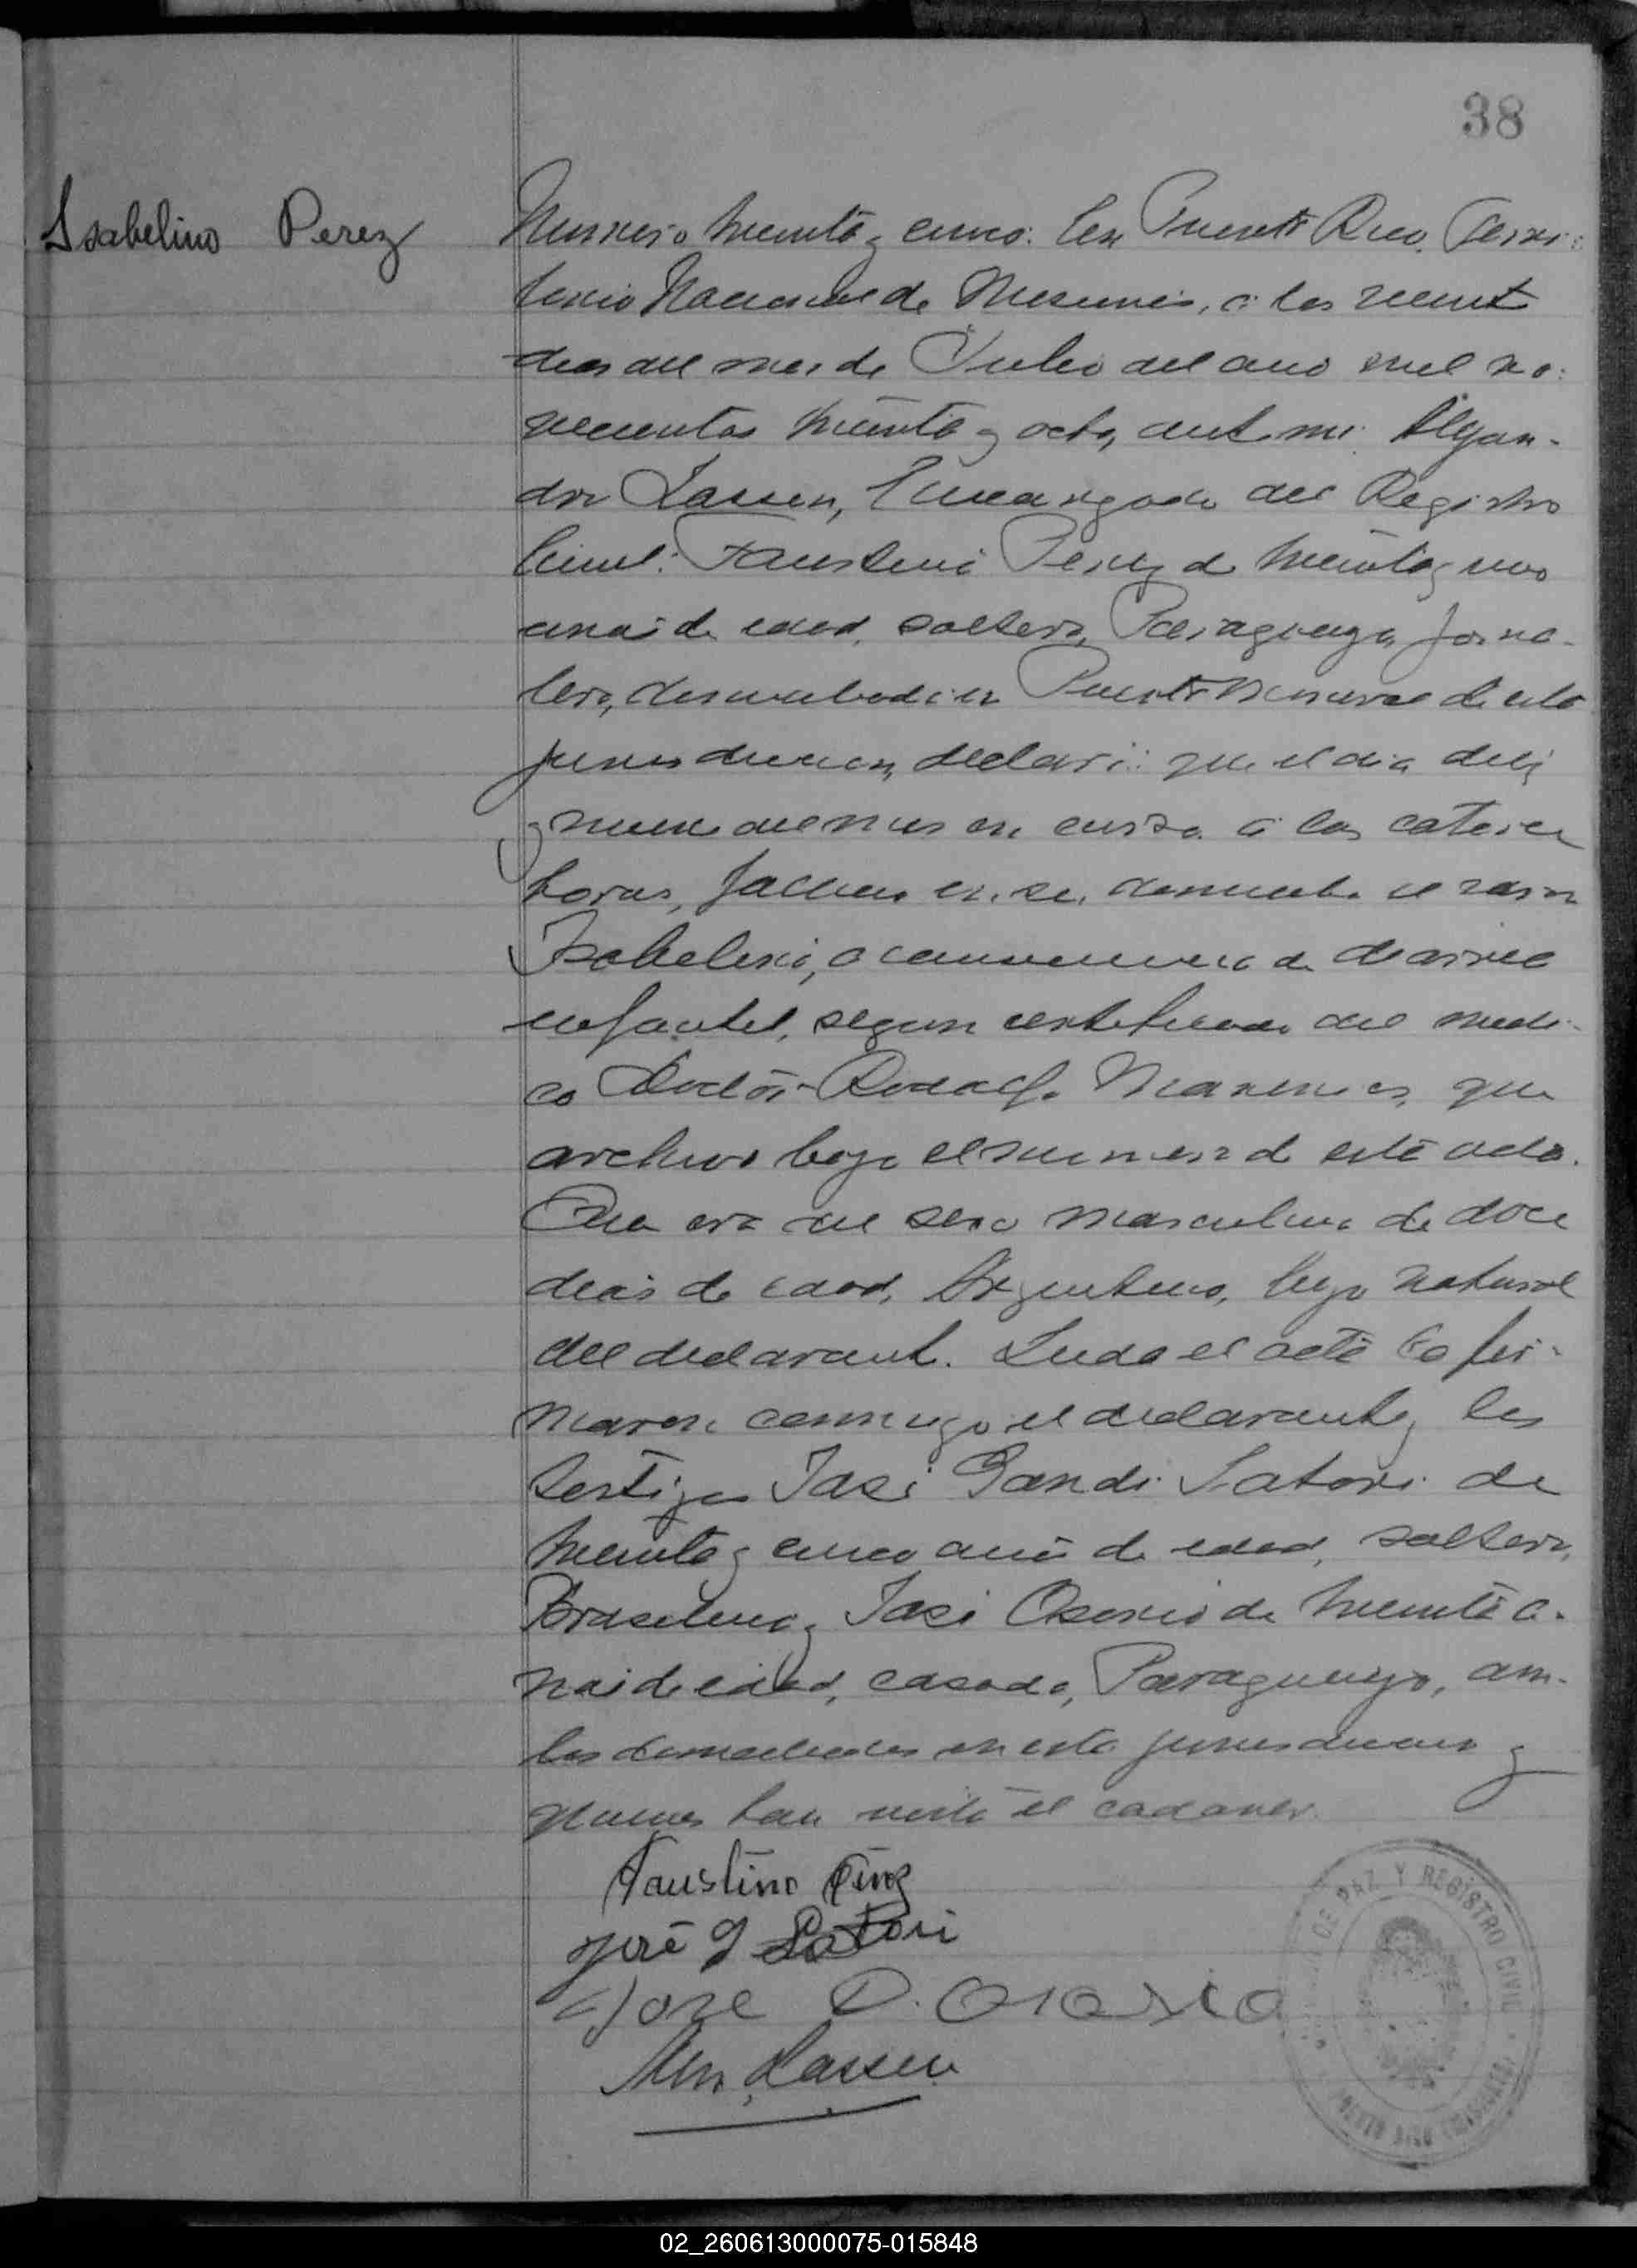 38
Isabelino Perez
Numero treinta y cinco. En Puerto Rico, Terri-
torio Nacional de Misiones, a los veinte
dias del mes de Julio del año mil no-
vecientos treinta y ocho, ante mi Alejan-
dro Lassen, Encargado del Registro
Civil: Faustino Perez de treinta y uno
años de edad, soltero, Paraguayo, jorna-
lero, domiciliado en Puerto Mineral de esta
jurisdiccion, declaró: que el dia diez
y nueve del mes en curso a las catorce
horas, fallecio en su domicilio el varon
Isabelino, a consecuencia de diarrea
infantil, segun certificado del medi-
co Doctor Rodolfo que
archivo bajo el numero de este acta.
Que era del sexo masculino de doce
dias de edad, Argentino, hijo natural
del declarante. Leida el acta la fir-
maron conmigo el declarante y los
testigos José Gandi Satori de
treinta y cinco años de edad, soltero,
Brasilero y José Osorio de treinta a-
ños de edad, casado, Paraguayo, am-
bos domiciliados en esta jurisdiccion y
quienes han visto el cadaver.
Faustino Perez
José G Satori
Jose D. Osorio
Alej. Lassen
DE PAZ Y REGISTRO CIVIL
02_260613000075-015848